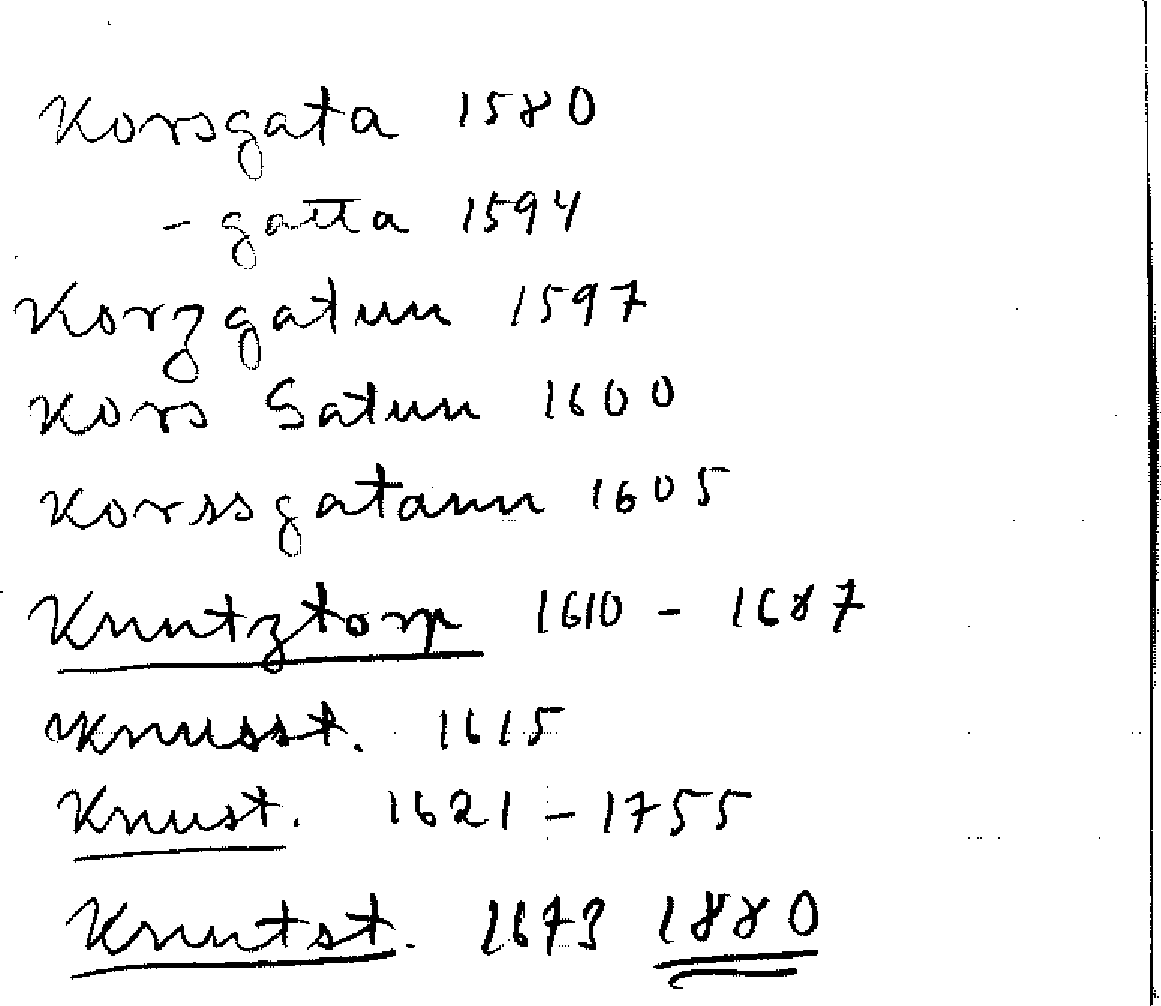 Korsgata 1580
- gatta 1594
Korzgatun 1597
Kors Gatun 1600
Korssgatann 1605
Knutztorp 1610 - 1687
Knusst. 1615
Knust. 1621 - 1755
Knutst. 1673 1880